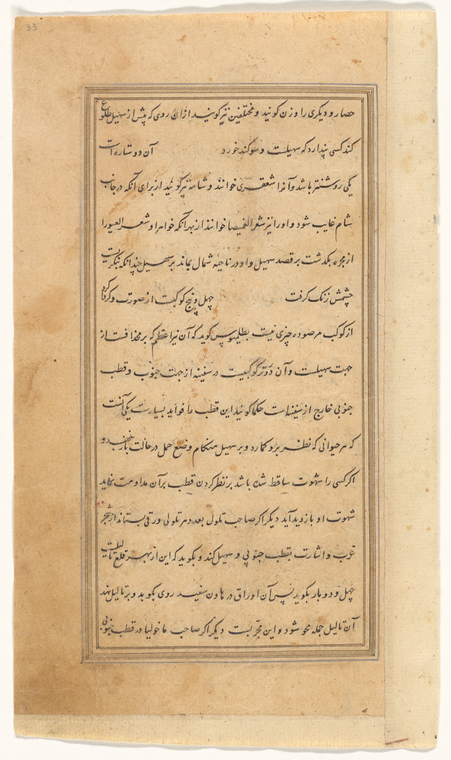 33
حصار و دیگری را وزن گویند و مختلفین نیز گویند از ان روی که پیش از سهیل طلوع
کند کسی پندارد که سهیلست و سوگند خورد آن دو ستاره است
یکی روشنتر باشد و آنرا شعری خوانند و شامیه نیز گویند از برای آنکه در جانب
شام غایب شود و او را نیز شعر الغمیصا خوانند از بهر آنکه خواهر او شعر العبور را
از مجره بگذشت بر قصد سهیل و او در ناحیه شمال بماند بر سهیل چندانکه بگریست
چشمش زنگ گرفت چهل و پنج کوکبست از صورت و گرداگرد
از کوکب مرصوده چیزی نیست بطلیموس گوید که آن نیز اعظم که بر مخدافست از
جهت سهیلست و آن دورتر کوکبیست در سفینه از جهت جنوب و قطب
جنوبی خارج از سفینه است حکما گویند این قطب را فواید بسیارست یکی آنست
که هر حیوانی که نظر برو گمارد و بر سهیل هنگام وضع حمل در حالت بار بنهند و
اگر کسی را شهوت ساقط شده باشد بر نظر کردن قطب بر آن مداومت نماید
شهوت او بازدید آید دیگر اگر صاحب ثالول بعدد هر ثلولی ورقی بستاند از شجر
غرب و اشارت بقطب جنوبی و سهیل کند و بگوید که این از بهر قلع ثالیلست
چهل و دو بار بگوید پس آن اوراق در هاون سفید روی بکوبد و بر ثالیل نهد
آن ثالیل جمله محو شود و این مجربست دیگر اگر صاحب ماخولیا در قطب جنوبی